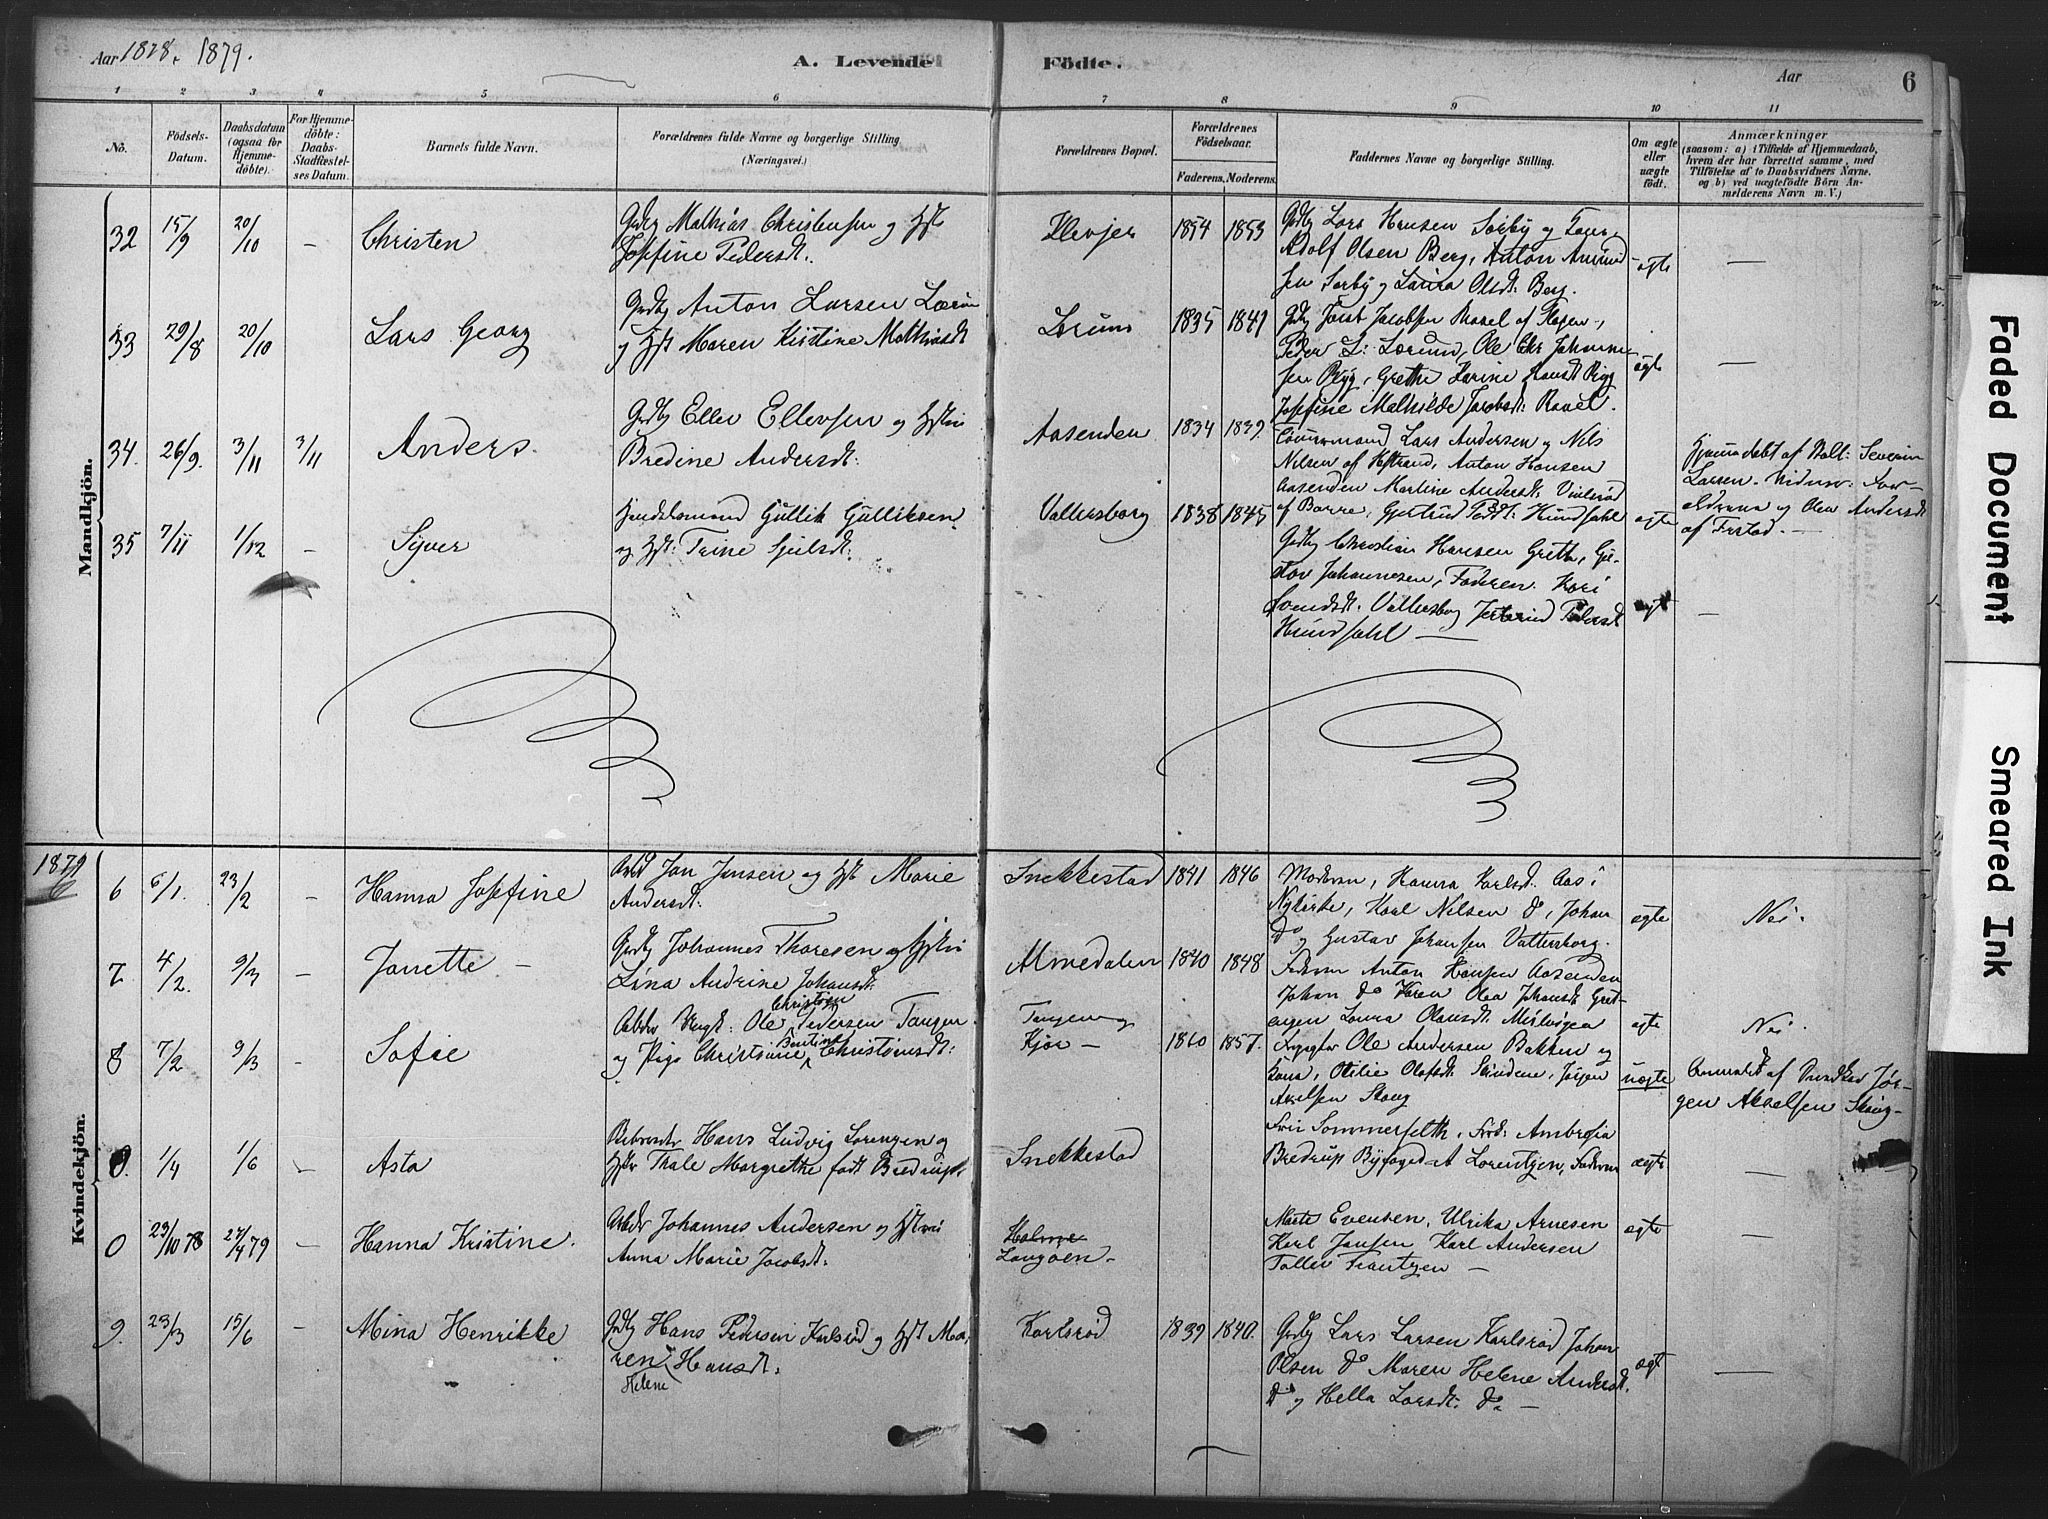 Aar 1878. 1879.
A. Levende Födte.
Aar
6
1 2 3 4 5 6 7 8 9 10 11
No.
Födsels-
Datum.
Daabsdatum
(ogsaa for
Hjemme-
döbte).
For Hjemme-
döbte:
Daabs-
Stadfæstel-
ses Datum.
Barnets fulde Navn.
Forældrenes fulde Navne og borgerlige Stilling
(Næringsvei.)
Forældrenes Bopæl.
Forældrenes
Födselsaar.
Faderens. Moderens.
Faddernes Navne og borgerlige Stilling.
Om ægte
eller
uægte
födt.
Anmærkninger
(saasom: a) i Tilfælde af Hjemmedaab,
hvem der har forrettet samme, med
Tilföielse af to Daabsvidners Navne.
og b) ved uægtefödte Börn An-
melderens Navn m. V.)
Mandkjön.
32 15/9 20/10 - Christen
Gdbr Mathias Christensen og Hst
Josefine Pedersdt.
Klevjer 1854 1853
Gdbr Lars Hansen Sørby og
Adolf Olsen Berg, Anton
sen Sørby og Laura Olsdt. Berg.
ægte —
33 29/8 20/10 Lars Georg
Gdbr Anton Larsen Lørum
og Hst Maren Kristine Mathiasdt
Lorum 1835 1841
Gdbr Jacobsen Ravel af Slagen,
Peder L. Lørum, Ole Chr Johanne-
sen Ryg, Grethe Karine Hansdt Ryg
Josefine Mathilde Jacobsdt: Ravel.
ægte —
34. 26/9. 3/11 3/11 Anders.
Gdbr Ellev Ellevsen og Hstru
Bredine Andersdt:
Aasenden 1834 1839
Tømmermand Lars Andersen og Nils
Nilsen af Anton Hansen
Aasenden Martine Andersdt
af Borre, Gjertrud Pedt: Hundsahl
ægte
Hjemmedøbt af Severin
Larsen. Vidner: For-
ældrene og Olea Andersdt
af
35 7/11 1/12 - Syver
Handelsmand Gullik Gulliksen
og Hst: Trine
Vallersborg 1838 1845
Gdbr Christian Hansen Greth, Gu-
stav Johannesen, Faderen. Kari
Vallersborg Pedersdt
Hundsahl —
ægte —
1879
6
Kvindekjön.
6 6/1. 23/2 - Hanna Josefine
Arbd Jan Jensen og Hst Marie
Andersdt:
Snekkestad 1841 1846
Moderen, Hanna Karlsdt. Aas i
Nykirke, Karl Nilsen do, Johan
do og Gustav Johansen Vallersborg.
ægte Nei.
7 4/2. 9/3 - Janette —
Gdbr Johannes Thoresen og Hstru
Lina Andrine Johansdt:
Almedalen 1840 1848
Faderen Anton Hansen Aasenden
Johan do Karen Olea Johansdt
Laura Olausdt:
ægte Nei.
8 7/2 9/3 - Sofie
Arbdr Ungk: Ole Christian Pedersen Tangen
og Pige Christiane Bentine Christensdt:
Tangen og
Kjær — 1860 1857.
Ole Andersen Bakken og
Kona, Otilie Olafsdt: Jørgen
Akselsen Skoug
uægte
Anmeldt af Jør-
gen Akselsen Skoug-
1/4 1/6 - Asta
Hans Ludvig Lorenzen og
Hstr Thale Margrethe født Bredrup.
Snekkestad
Sommerfelth, Frk: Ambrosia
Bredrup Byfoged A Lorentzen, Faderen
ægte —
0 23/10 78 27/4 79 - Hanna Kristine.
Arbdr Johannes Andersen og Hstru
Anna Marie Jacobsdt:
Holme
Langøen-
Marte Evensen, Ulrika Arnesen
Karl Jansen Karl Andersen
Frantzen —
ægte —
9. 23/3 15/6 - Mina Henrikke
Gdbr Hans Pedersen Karlsrød og Hst Ma-
ren Helene Hansdt:
Karlsrød 1839 1840.
Gdbr Lars Larsen Karlsrød Johan
Olsen do Maren Helene Andersdt.
do og Hella Larsdt: do —
ægt —
Faded Document
Smeared Ink